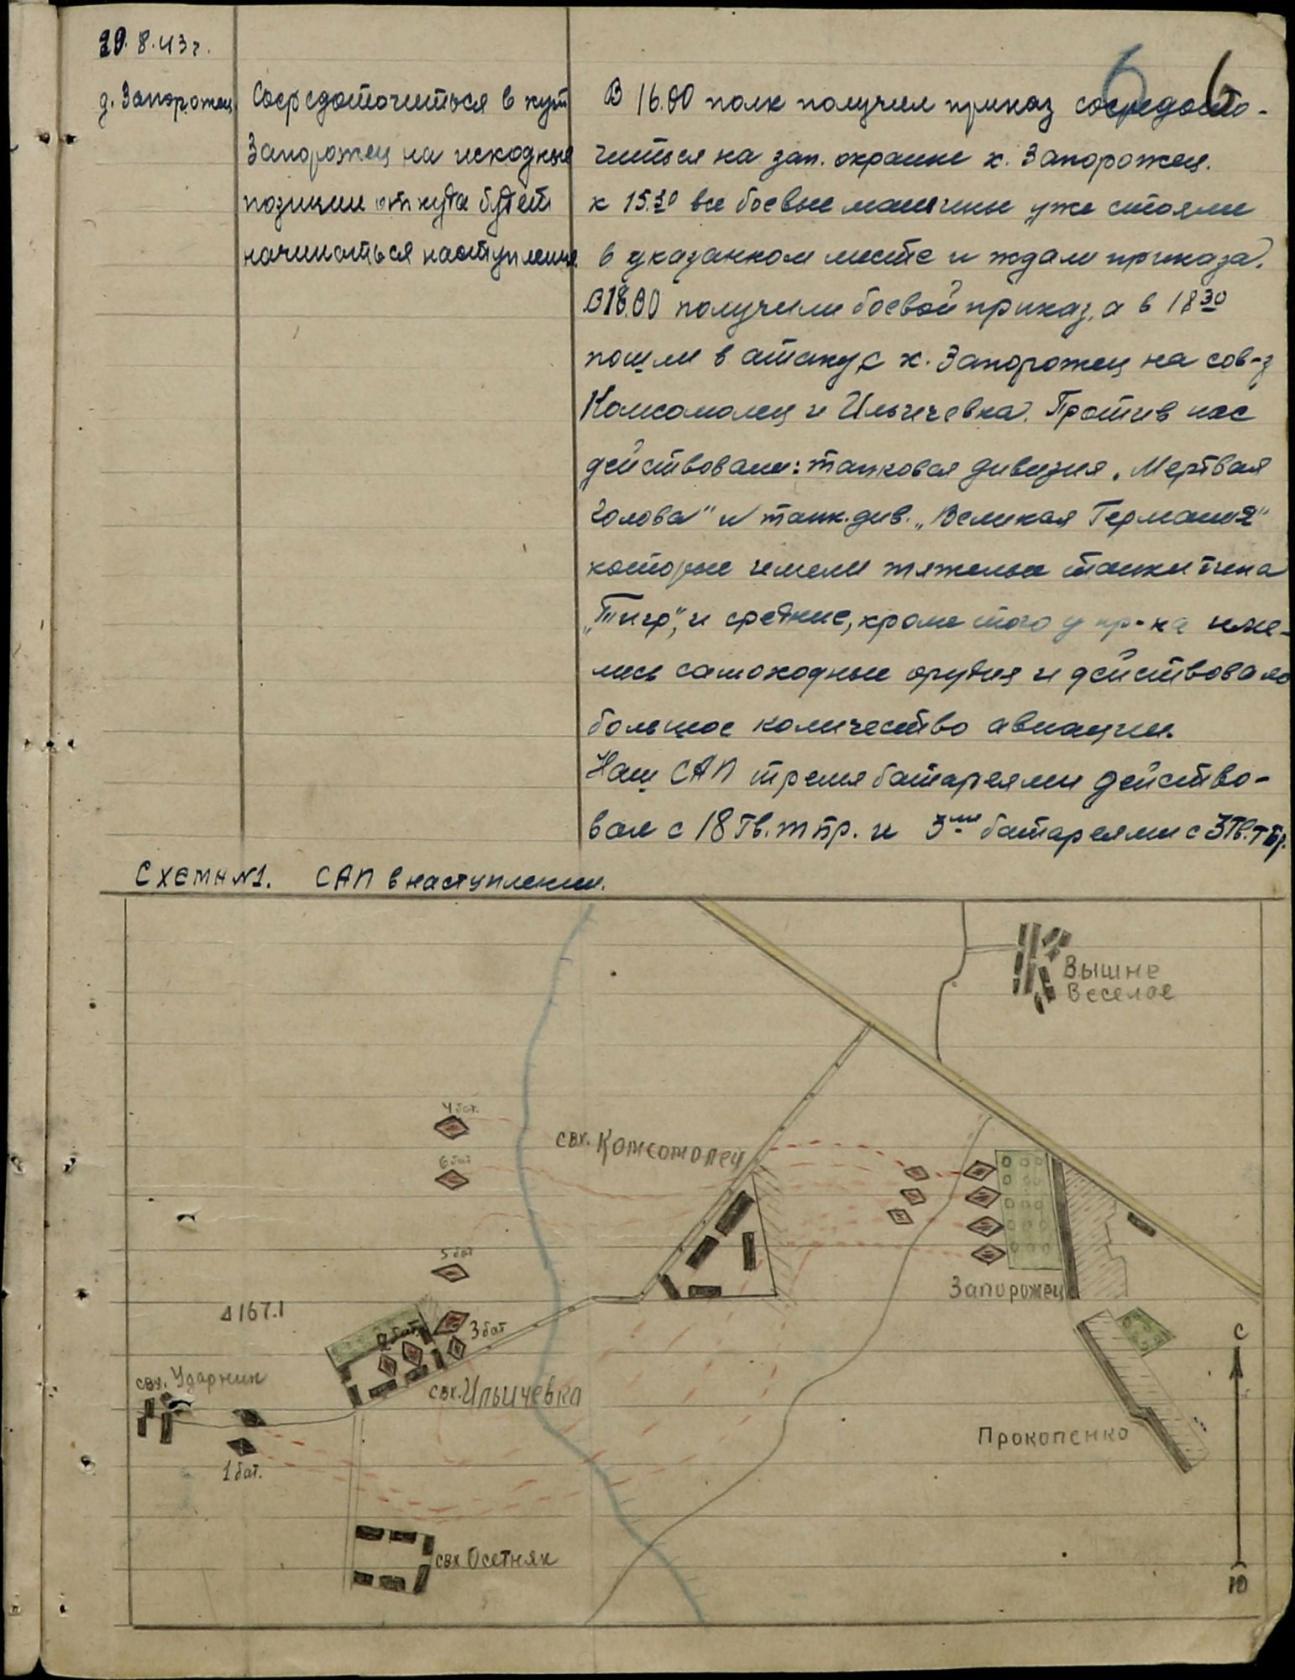 20.8.43г.
6 6
д. Запорожец
Сосредоточиться в хут.
Запорожец на исходные
позиции откуда будет
начинаться наступление.
В 16.00 полк получил приказ сосредото-
читься на зап. окраине х. Запорожец.
к 15.30 все боевые машины уже стояли
в указанном месте и ждали приказа.
В 18.00 получили боевой приказ, а в 18 30
пошли в атаку с х. Запорожец на сов-з
Комсомолец и Ильичевка. Против нас
действовали: танковая дивизия „Мертвая
голова" и танк.див. „Великая Германия"
которые имели тяжелые танки типа
„Тигр", и средние, кроме того у пр-ка име-
лись самоходные орудия и действовало
большое количество авиации.
Наш САП тремя батареями действо-
вал с 18 Гв.т бр. и 3-мя батареями с 3 Гв.т бр.
Схема №1. САП в наступлении.
Вышне
Веселое
4 бат.
свх. Комсомолец
6 бат
5 бат
Запорожец
Δ 167.1
2 бат.
3 бат
С
свх. Ударник
свх. Ильичевка
Прокопенко
1 бат.
свх Осетняк
Ю